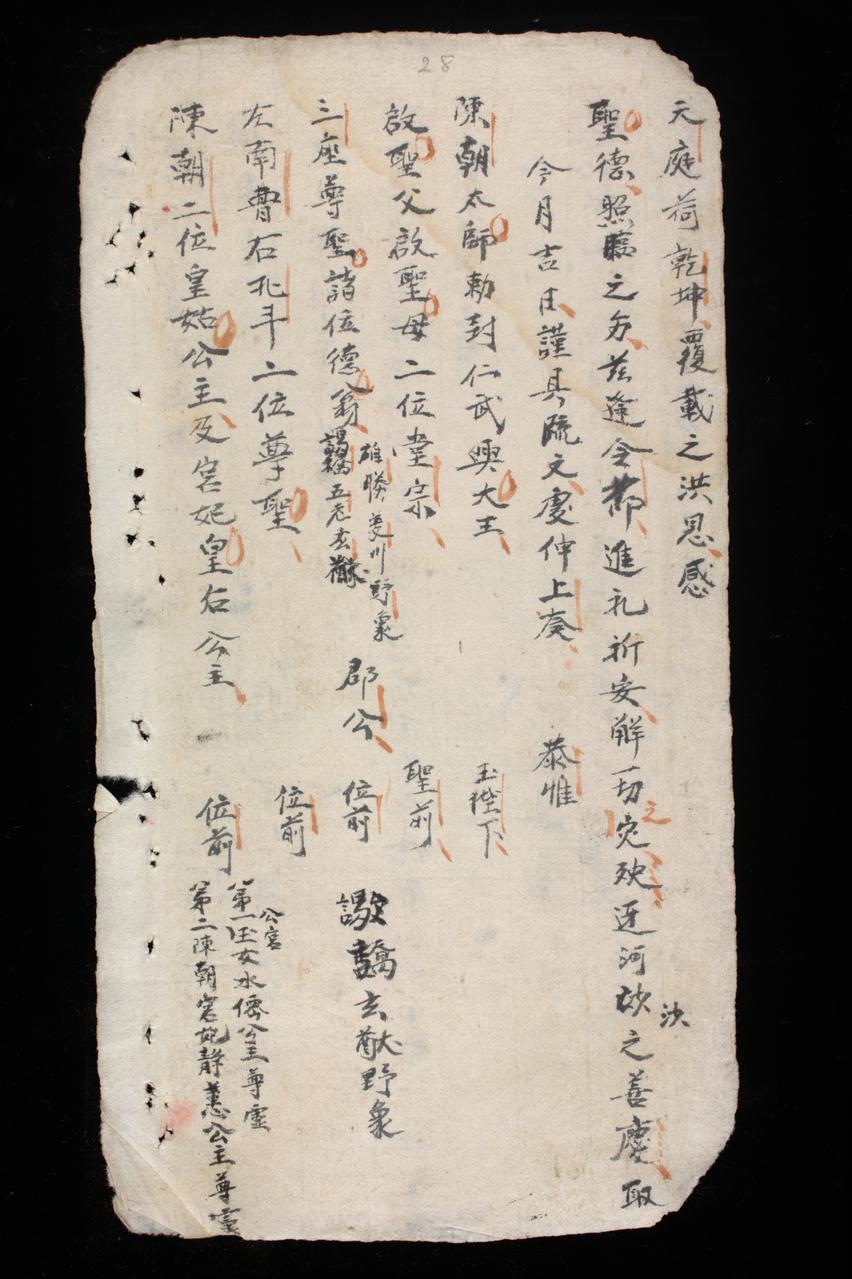 28
天庭荷乾坤覆載之洪恩感
聖德照臨之 茲逢令節進礼祈安解一切之 迓河沙之善慶取
沙
今月吉日謹具疏文虔伸上奏 恭惟
陳朝太師勅封仁武興大王 玉陛下
啟聖父啟聖母二位堂宗 聖前
三座尊聖諸位德翁 雄勝 川野象 五老玄 郡公 位前 玄猷野象
左南曹右北斗二位尊聖 位前
陳朝二位皇姑公主及宮妃皇后公主 位前
公宮
第一玉女水僊公主尊靈
第二陳朝宮妃靜惠公主尊靈